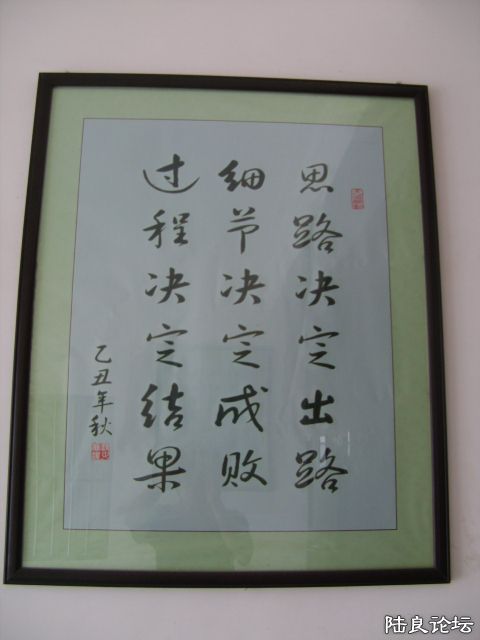 思路决定出路
细节决定成败
过程决定结果
乙丑年秋
陆良论坛